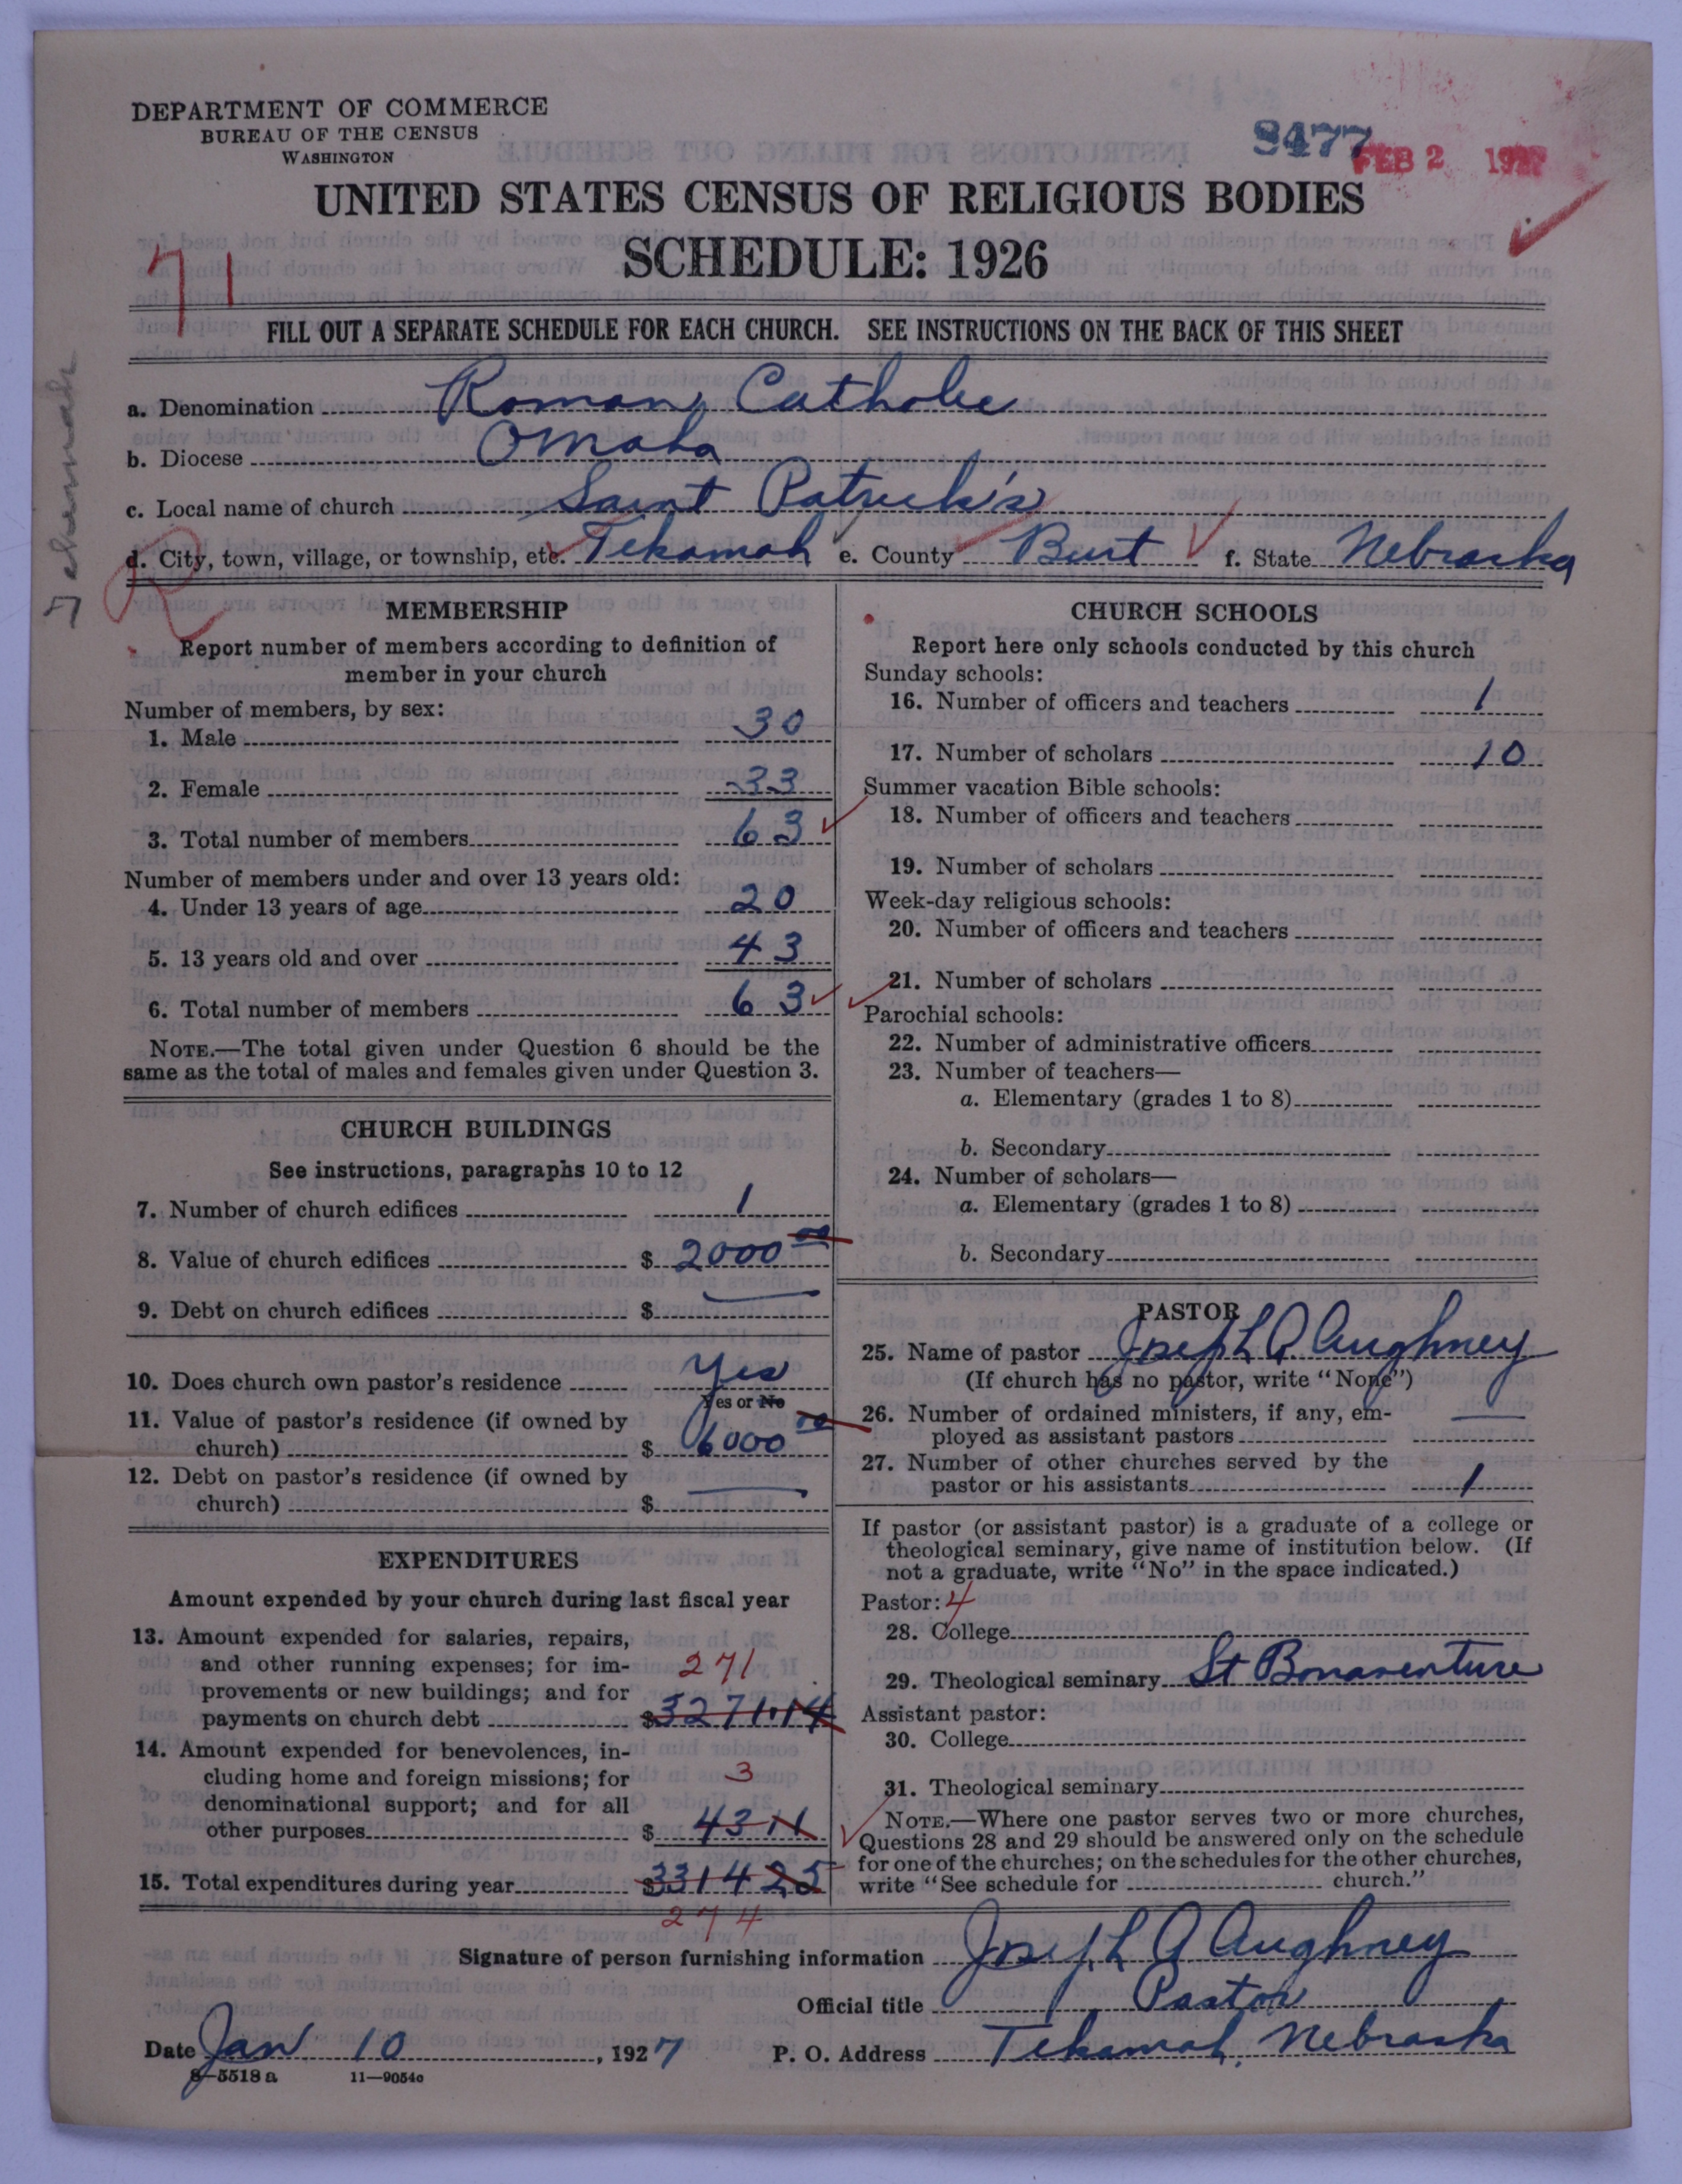 DEPARTMENT OF COMMERCE
BUREAU OF THE CENSUS
WASHINGTON
8477
FEB 2 1927
UNITED STATES CENSUS OF RELIGIOUS BODIES
SCHEDULE: 1926
71
FILL OUT A SEPARATE SCHEDULE FOR EACH CHURCH. SEE INSTRUCTIONS ON THE BACK OF THIS SHEET
Tekamah
a. Denomination Roman Catholic
b. Diocese Omaha
c. Local name of church Saint Patrick's
d. City, town, village, or township, etc. Tekamah e. County Burt f. State Nebraska
MEMBERSHIP
Report number of members according to definition of
member in your church
Number of members, by sex:
1. Male 30
2. Female 33
3. Total number of members 63
Number of members under and over 13 years old:
4. Under 13 years of age 20
5. 13 years old and over 43
6. Total number of members 63
NOTE.—The total given under Question 6 should be the
same as the total of males and females given under Question 3.
CHURCH BUILDINGS
See instructions, paragraphs 10 to 12
7. Number of church edifices 1
8. Value of church edifices $ 2000 00
9. Debt on church edifices $
10. Does church own pastor's residence Yes
Yes or No
11. Value of pastor's residence (if owned by
church) $ 6000 00
12. Debt on pastor's residence (if owned by
church) $
EXPENDITURES
Amount expended by your church during last fiscal year
13. Amount expended for salaries, repairs,
and other running expenses; for im- 271
provements or new buildings; and for
payments on church debt $ 3271.14
14. Amount expended for benevolences, in-
cluding home and foreign missions; for 3
denominational support; and for all
other purposes $ 43 11
15. Total expenditures during year $ 3314 25
274
CHURCH SCHOOLS
Report here only schools conducted by this church
Sunday schools:
16. Number of officers and teachers 1
17. Number of scholars 10
Summer vacation Bible schools:
18. Number of officers and teachers
19. Number of scholars
Week-day religious schools:
20. Number of officers and teachers
21. Number of scholars
Parochial schools:
22. Number of administrative officers
23. Number of teachers—
a. Elementary (grades 1 to 8)
b. Secondary
24. Number of scholars—
a. Elementary (grades 1 to 8)
b. Secondary
PASTOR
25. Name of pastor Joseph A Aughney
(If church has no pastor, write "None")
26. Number of ordained ministers, if any, em-
ployed as assistant pastors
27. Number of other churches served by the
pastor or his assistants 1
If pastor (or assistant pastor) is a graduate of a college or
theological seminary, give name of institution below. (If
not a graduate, write "No" in the space indicated.)
Pastor: 4
28. College
29. Theological seminary St Bonaventure
Assistant pastor:
30. College
31. Theological seminary
NOTE.—Where one pastor serves two or more churches,
Questions 28 and 29 should be answered only on the schedule
for one of the churches; on the schedules for the other churches,
write "See schedule for church."
Signature of person furnishing information Joseph A Aughney
Official title Pastor
Date Jan 10, 1927 P. O. Address Tekamah, Nebraska
8—5518 a 11—9054c